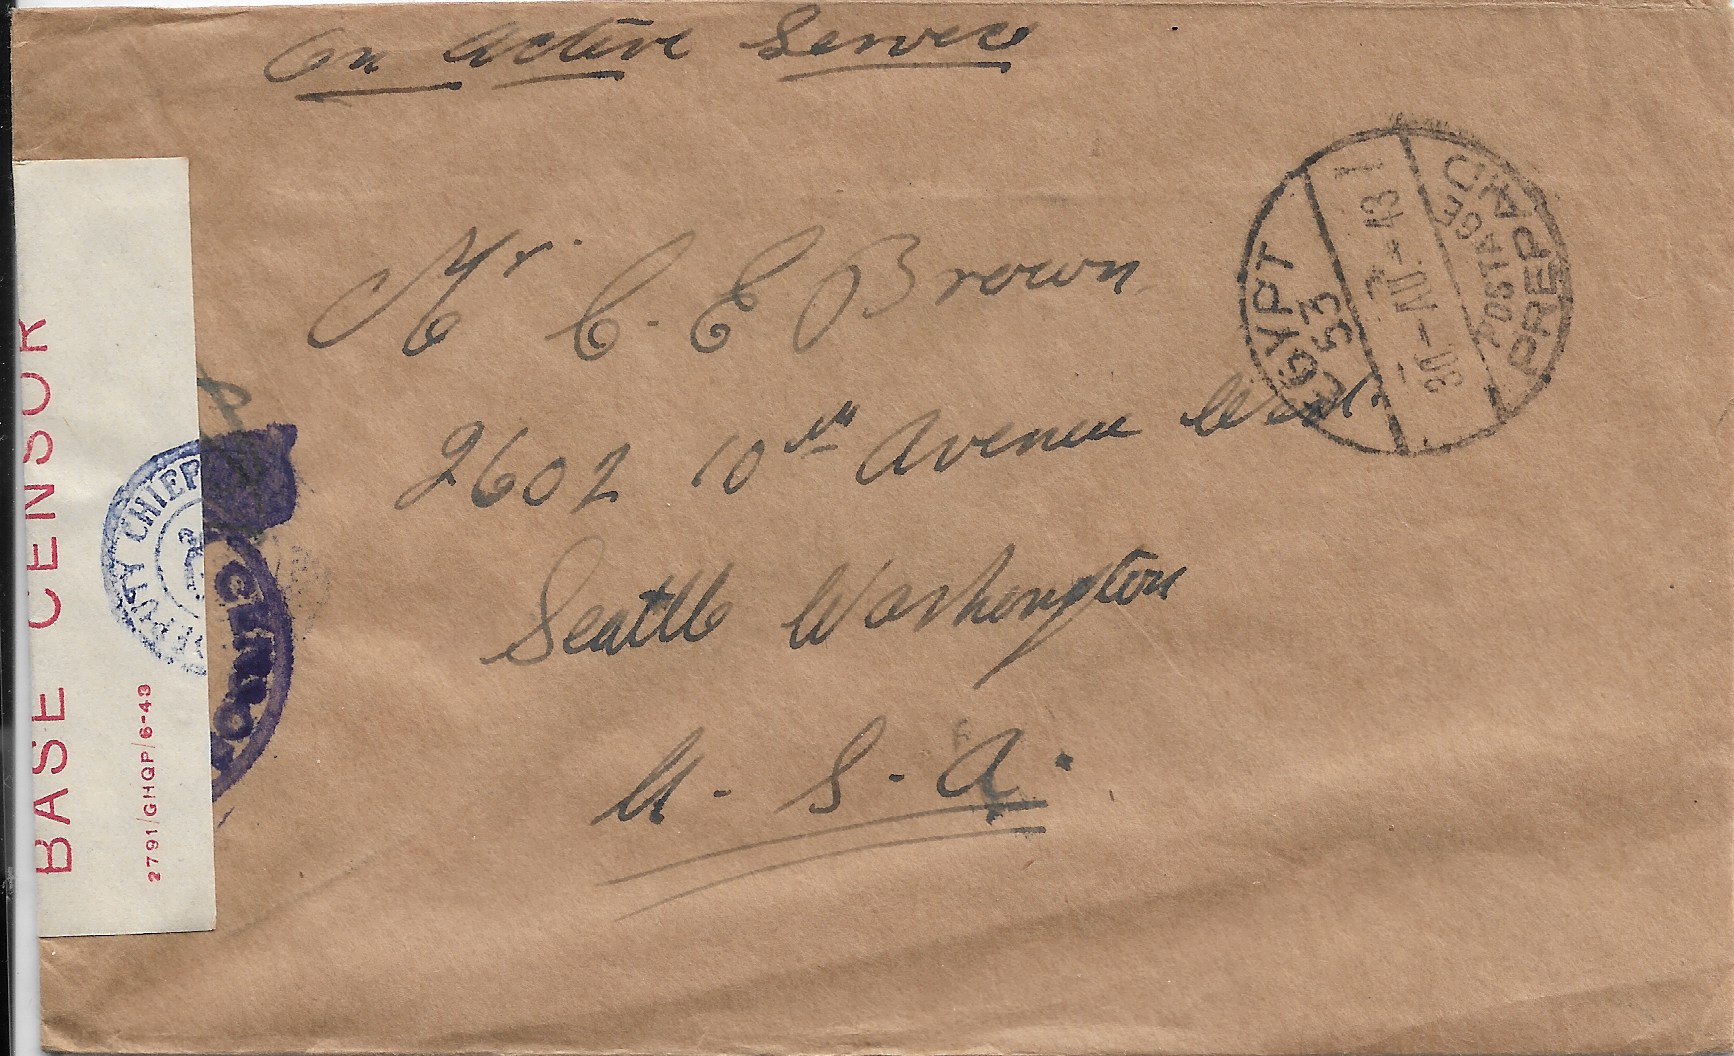 On Active Service
Mr. C. E Brown
2602 10th Avenue West.
Seattle Washington
U. S. A.
EGYPT
53
30
43
POSTAGE
PREPAID
BASE CENSOR
2791/GHQP/6-43
DEPUTY CHIEF
CENSOR